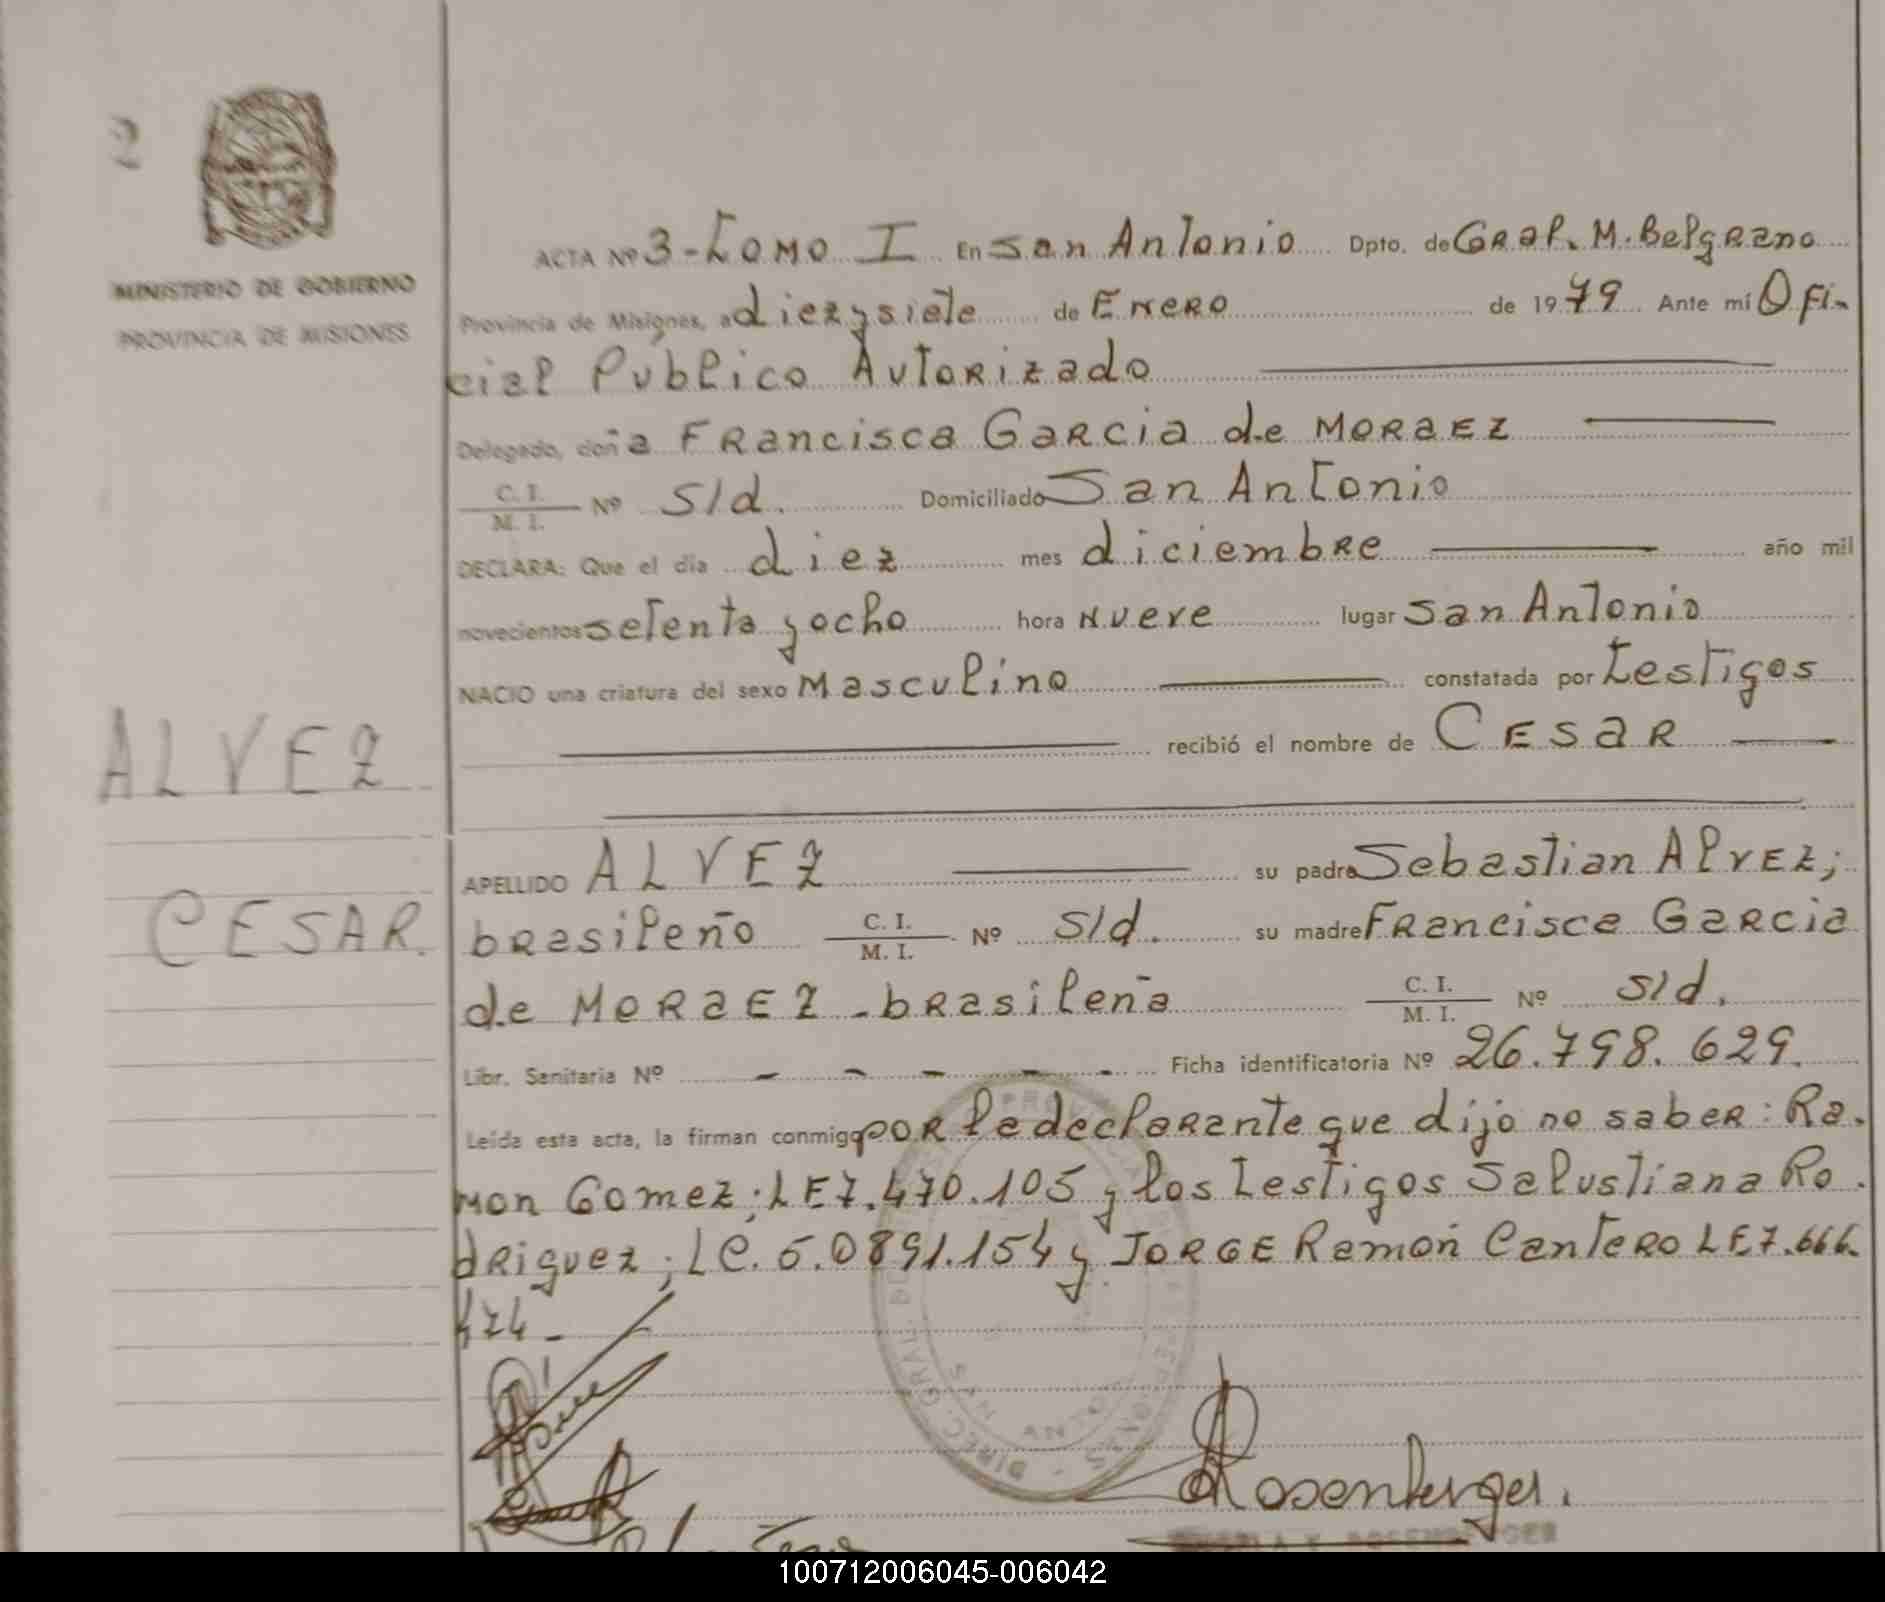 2
MINISTERIO DE GOBIERNO
PROVINCIA DE MISIONES
ACTA Nº 3-Tomo I En San Antonio Dpto. de Gral. M. Belgrano
Provincia de Misiones, a diezysiete de Enero de 1979 Ante mí Ofi-
cial Público Autorizado
Delegado, doña Francisca Garcia de MORAEZ
C. I.
M. I. Nº S/d. Domiciliado San Antonio
DECLARA: Que el día diez mes diciembre año mil
novecientos setenta y ocho hora nueve lugar San Antonio
NACIO una criatura del sexo Masculino constatada por testigos
recibió el nombre de CESAR
ALVEZ
CESAR.
APELLIDO ALVEZ su padre Sebastian Alvez;
brasileño C. I.
M. I. Nº S/d. su madre Francisca Garcia
de MORAEZ - brasileña C. I.
M. I. Nº S/d.
Libr. Sanitaria Nº - - - - - Ficha identificatoria Nº 26.798.629.
Leída esta acta, la firman conmigo por la declarante que dijo no saber: Ra-
mon Gomez; LE7.470.105 y los testigos Salustiana Ro-
driguez; LC. 5.0891.154 y JORGE Ramón Cantero LE7.666.
474-
Rosenberger.
100712006045-006042